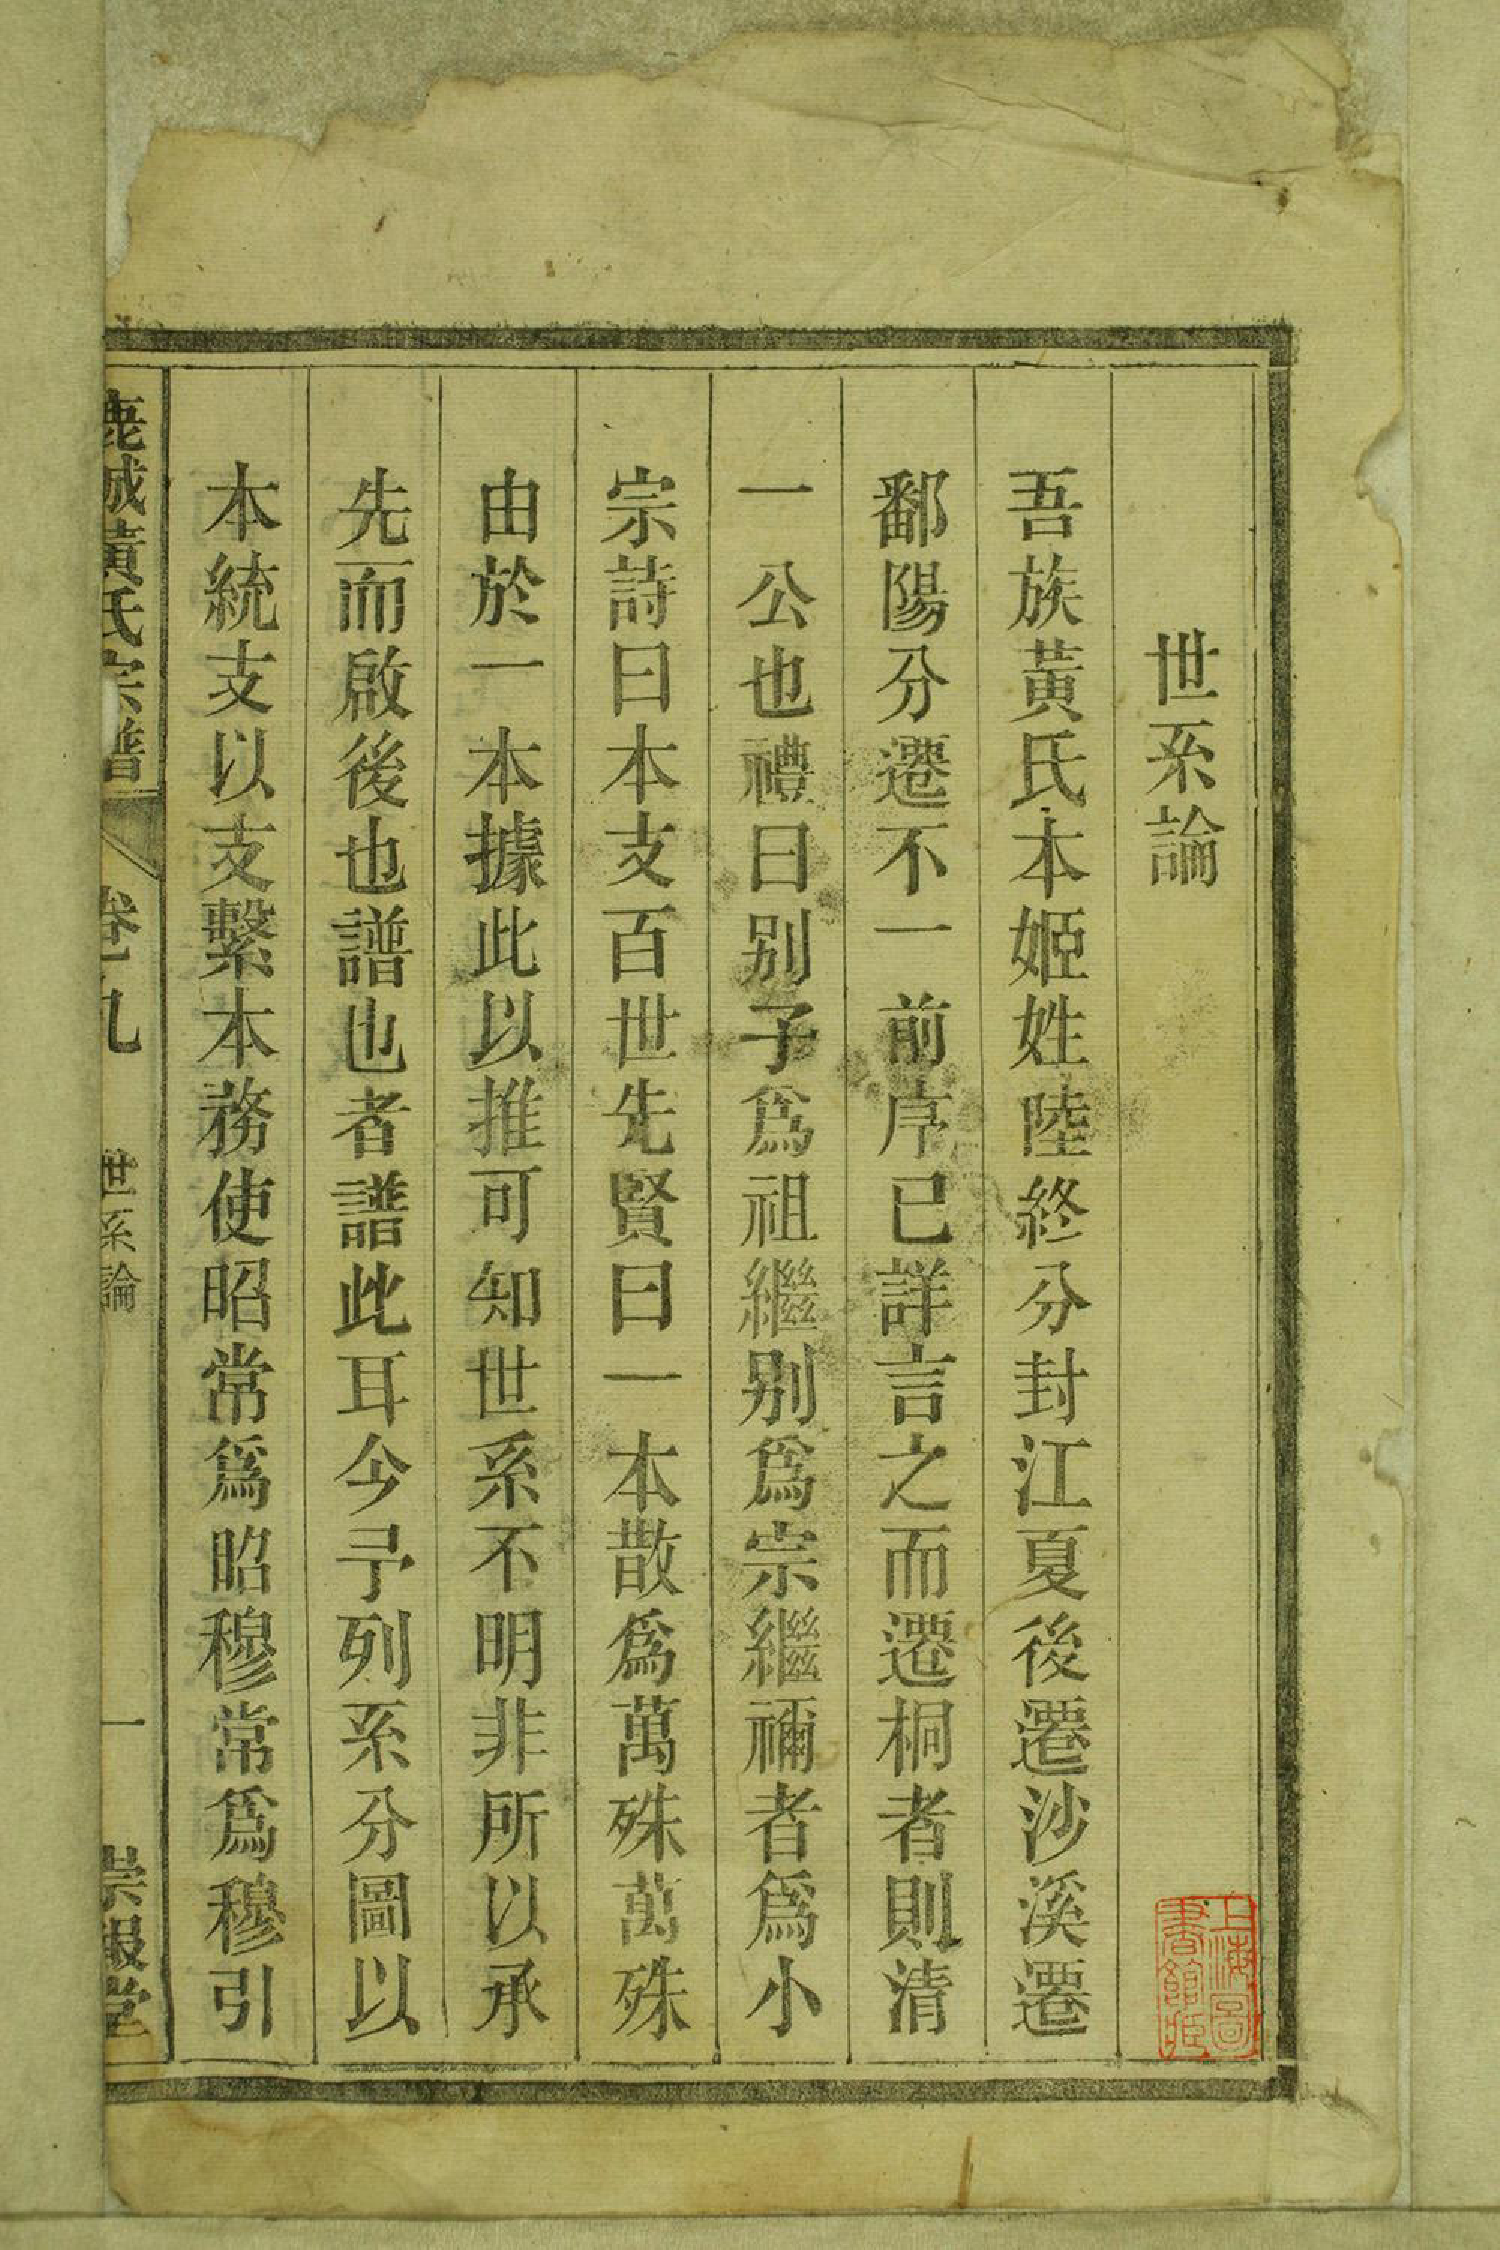 世系論
吾族黃氏本姬姓陸終分封江夏後遷沙溪遷
鄱陽分遷不一前序已詳言之而遷桐者則清
一公也禮曰别子爲祖繼别爲宗繼禰者爲小
宗詩曰本支百世先賢曰一本散爲萬殊萬殊
由於一本據此以推可知世系不明非所以承
先而啟後也譜也者譜此耳今予列系分圖以
本統支以支繫本務使昭常爲昭穆常爲穆引
鹿城黃氏宗譜
卷九
世系論
一
崇報堂
上海圖書館藏